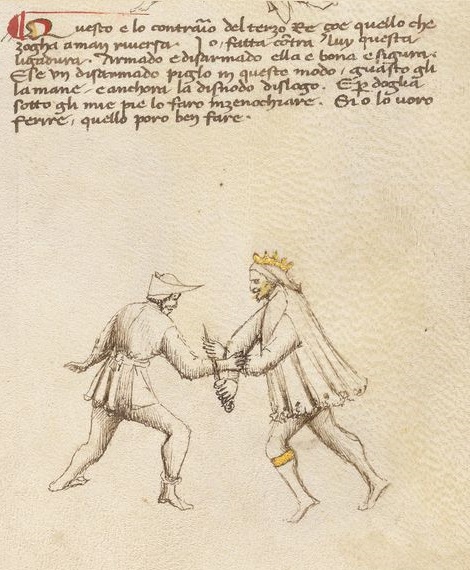 Questo e lo contraῑo del terzo Re çoe quello che
zogha a man riversa. Io, fatta cōtra luy questa
ligadura. Armado e disarmado ella e bona e sigura.
E se un disarmado piglo in questo modo, guasto gli
la mane e anchora la disnodo dislogo. E p̱ doglia
sotto gli mie pie lo faro inzenochiare. Si o lo voro
ferire, quello poro ben fare.